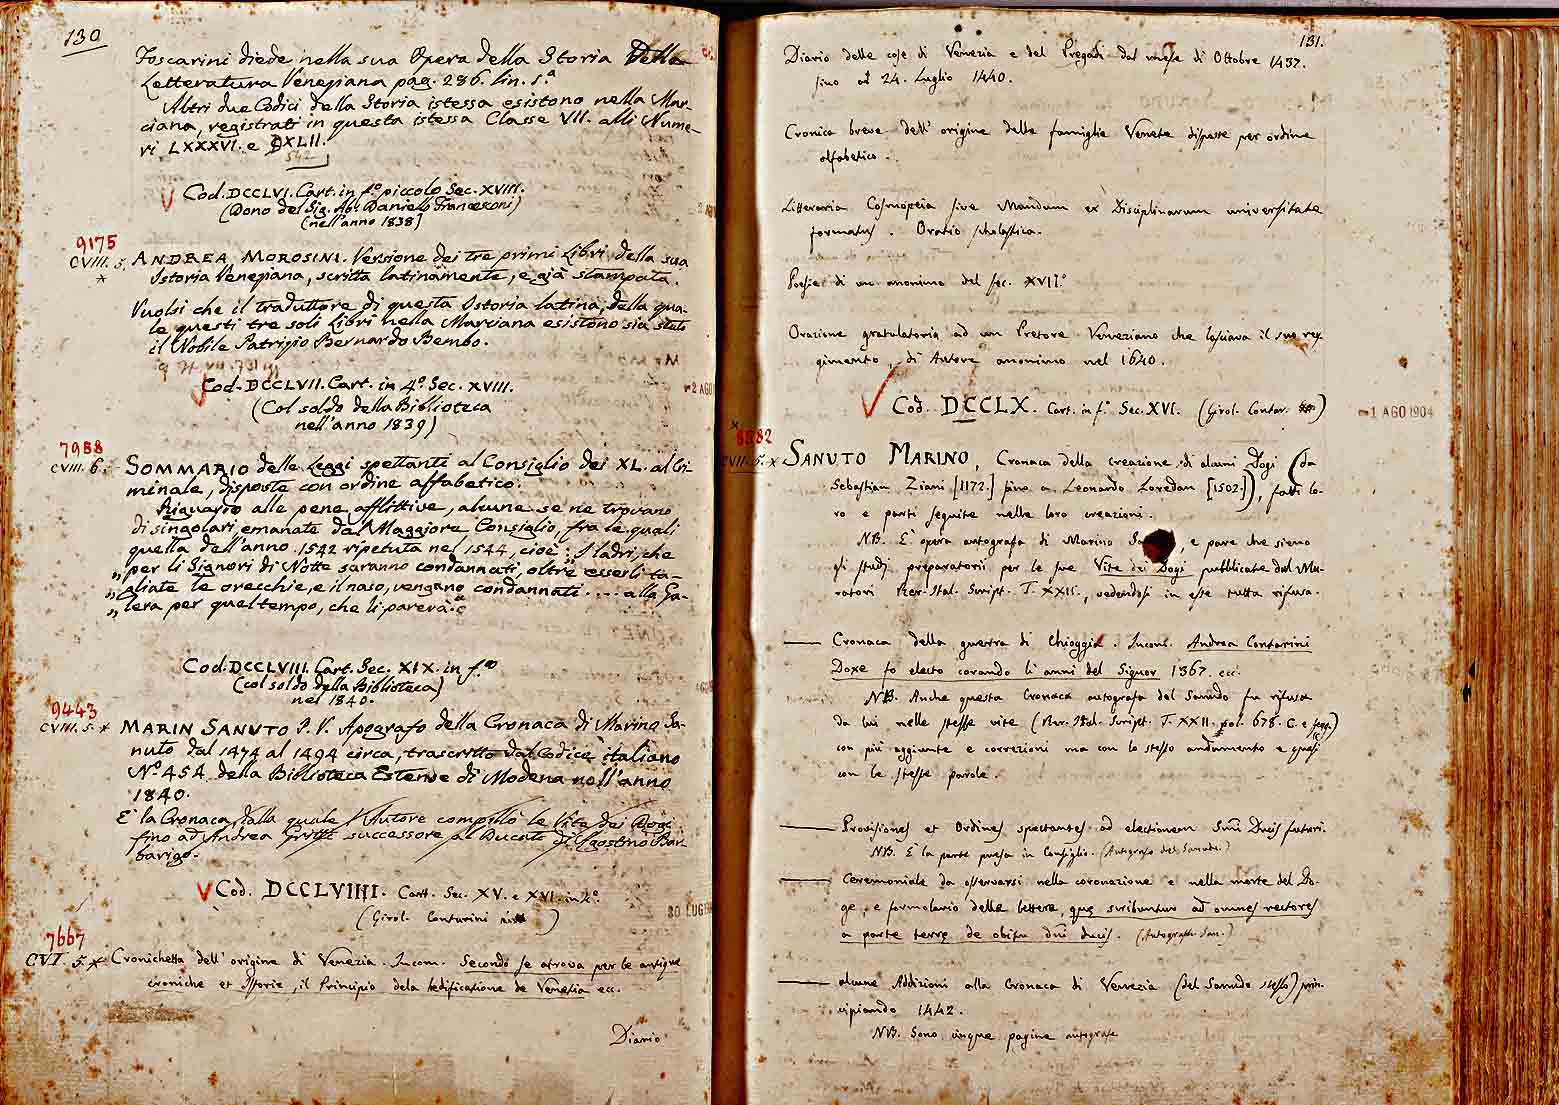 130
Foscarini diede nella sua Opera della Storia Della
Letteratura Veneziana pag. 286. lin. 5.a
Altri due Codici della Storia istessa esistono nella Mar-
ciana, registrati in questa istessa Classe VII. alli Nume-
ri LXXXVI. e DXLII.
542
Cod. DCCLVI. Cart. in f.o piccolo Sec. XVIII.
(Dono del Sig. Ab. Daniello Francesconi)
(nell'anno 1838)
9175
CVIII. 5.
*
ANDREA MOROSINI. Versione dei tre primi Libri della sua
Istoria Veneziana, scritta latinamente, e già stampata.
Vuolsi che il traduttore di questa Istoria latina, della qua-
le questi tre soli Libri nella Marciana esistono sia stato
il Nobile Patrizio Bernardo Bembo.
Cod. DCCLVII. Cart. in 4.o Sec. XVIII.
(Col soldo della Biblioteca
nell'anno 1839)
2 AGO
7988
CVIII. 6.
SOMMARIO delle Leggi spettanti al Consiglio dei XL. al Cri-
minale, disposte con ordine alfabetico.
Riguardo alle pene afflittive, alcune se ne trovano
di singolari emanate dal Maggiore Consiglio, fra le quali
quella dell'anno 1542 ripetuta nel 1544, cioè: I ladri, che
„ per li Signori di Notte saranno condannati, oltre esserli ta-
„ gliate le orecchie, e il naso, vengano condannati .... alla Ga-
„ lera per quel tempo, che li parerà.
Cod. DCCLVIII. Cart. Sec. XIX. in f.o
(col soldo della Biblioteca)
nel 1840.
9443
CVIII. 5. *
MARIN SANUTO P. V. Apografo della Cronaca di Marino Sa-
nuto dal 1474 al 1494 circa, trascritto dal Codice italiano
No 454 della Biblioteca Estense di Modena nell'anno
1840.
E' la Cronaca, dalla quale l'Autore compilò le Vite dei Dogi
fino ad Andrea Gritti successore al Ducato di Agostino Bar-
barigo.
Cod. DCCLVIIII. Cart. Sec. XV. e XVI. in 4.o
(Girol. Contarini)
30 LUG
7667
CVI. 5. *
Cronichetta dell'origine di Venezia. Incom. Secondo se atrova per le antique
croniche et Istorie, il Principio dela hedificatione de Venetia ecc.
Diario
131.
Diario delle cose di Venezia e del Pregadi dal mese di Ottobre 1437.
fino al 24. Luglio 1440.
Cronica breve dell'origine delle famiglie Venete disposte per ordine
alfabetico.
Litteraria Cosmopeia sive Mundum ex Disciplinarum universitate
formatus. Oratio scholastica.
Poesie di un anonimo del sec. XVII.o
Orazione gratulatoria ad un Pretore Veneziano che lasciava il suo reg-
gimento, di Autore anonimo nel 1640.
Cod. DCCLX. Cart. in f.o Sec. XVI. (Girol. Contar.)
1 AGO 1904
8382
CVII. 5. *
SANUTO MARINO, Cronaca della creazione di alcuni Dogi (da
Sebastian Ziani [1172.] sino a Leonardo Loredan [1502.]), fatti lo-
ro e parti seguite nelle loro creazioni.
NB. È opera autografa di Marino, e pare che sieno
gli studj preparatorii per le sue Vite dei Dogi pubblicate dal Mu-
ratori Rer. Ital. Script. T. XXII., vedendosi in esse tutta rifusa.
Cronaca della guerra di Chioggia. Incom. Andrea Contarini
Doxe fo electo corando li anni del Signor 1367. ecc.
NB. Anche questa Cronaca autografa del Sanudo fu rifusa
da lui nelle stesse vite (Rer. Ital. Script. T. XXII. pol. 678. C. e segg.)
con più aggiunte e correzioni ma con lo stesso andamento e quasi
con le stesse parole.
Provisiones et Ordines spectantes ad electionem Smi Ducis futuri.
NB. È la parte presa in Consiglio. (Autografo del Sanudo.)
Ceremoniale da osservarsi nella coronazione e nella morte del Do-
ge, e formolario delle lettere, quę scribuntur ad omnes rectores
a parte terrę de obitu dni ducis. (Autografo San.)
alcune Addizioni alla Cronaca di Venezia (del Sanudo stesso) prin-
cipiando 1442.
NB. Sono cinque pagine autografe